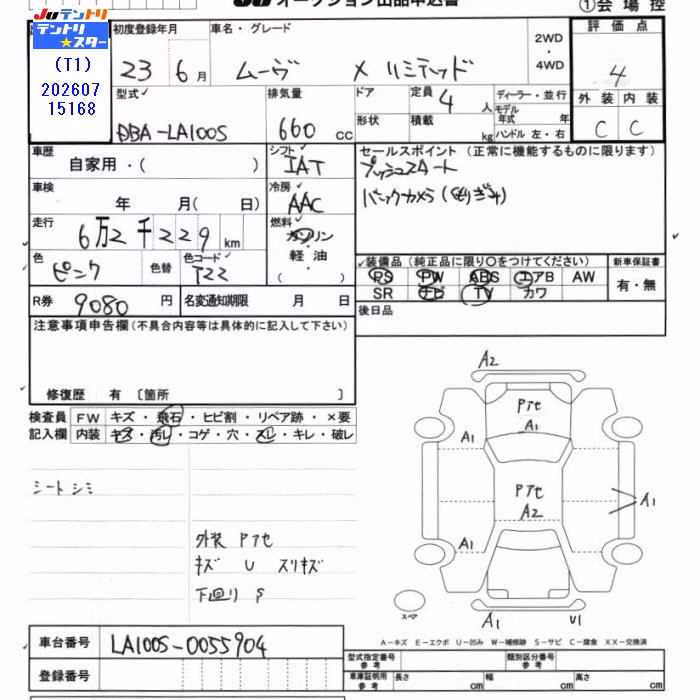 JUテントリ オークション出品申込書 ①会場控
テントリ★スター
(T1)
202607
15168
初度登録年月 車名・グレード 評価点
23 6月 ムーヴ X リミテッド 2WD・4WD 4
型式 排気量 ドア 定員 4人 ディーラー・並行 外装 内装
モデル年式 年
DBA-LA100S 660cc 形状 積載 kg ハンドル 左・右 C C
車歴 シフト セールスポイント (正常に機能するものに限ります)
自家用・( ) IAT プッシュスタート
車検 冷房 バックカメラ
年 月( 日) AAC
走行 燃料
6万2千229km ガソリン
軽油
( )
色 色替 色コード 装備品(純正品に限り○をつけてください) 新車保証書
ピンク T22 PS PW ABS エアB AW 有・無
SR ナビ TV カワ
R券 9080円 名変通知期限 月 日 後日品
注意事項申告欄(不具合内容等は具体的に記入して下さい)
修復歴 有 〔箇所 〕
検査員 FW キズ・飛石・ヒビ割・リペア跡・×要
記入欄 内装 キズ・汚レ・コゲ・穴・スレ・キレ・破レ
シート シミ
外装 Pアセ
キズ U スリキズ
下廻り S
A2
Pアセ
A1
A1
Pアセ
A2
A1
A1
スペア
A1 U1
A−キズ E−エクボ U−凹み W−補修跡 S−サビ C−腐食 XX−交換済
車台番号 LA100S-0055904
登録番号
型式指定番号 参考 類別区分番号 参考
車庫証明用 参考 長さ cm 幅 cm 高さ cm